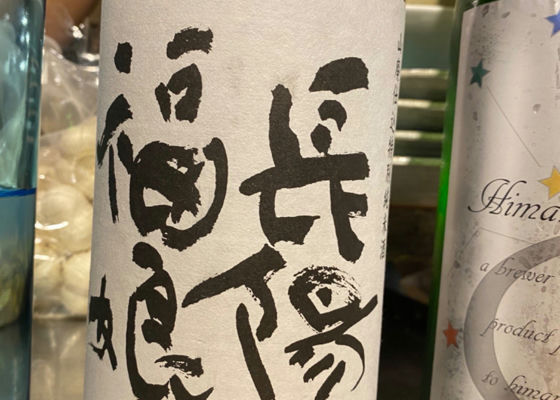 長陽
福娘
Hima
a brewer
product
to hima